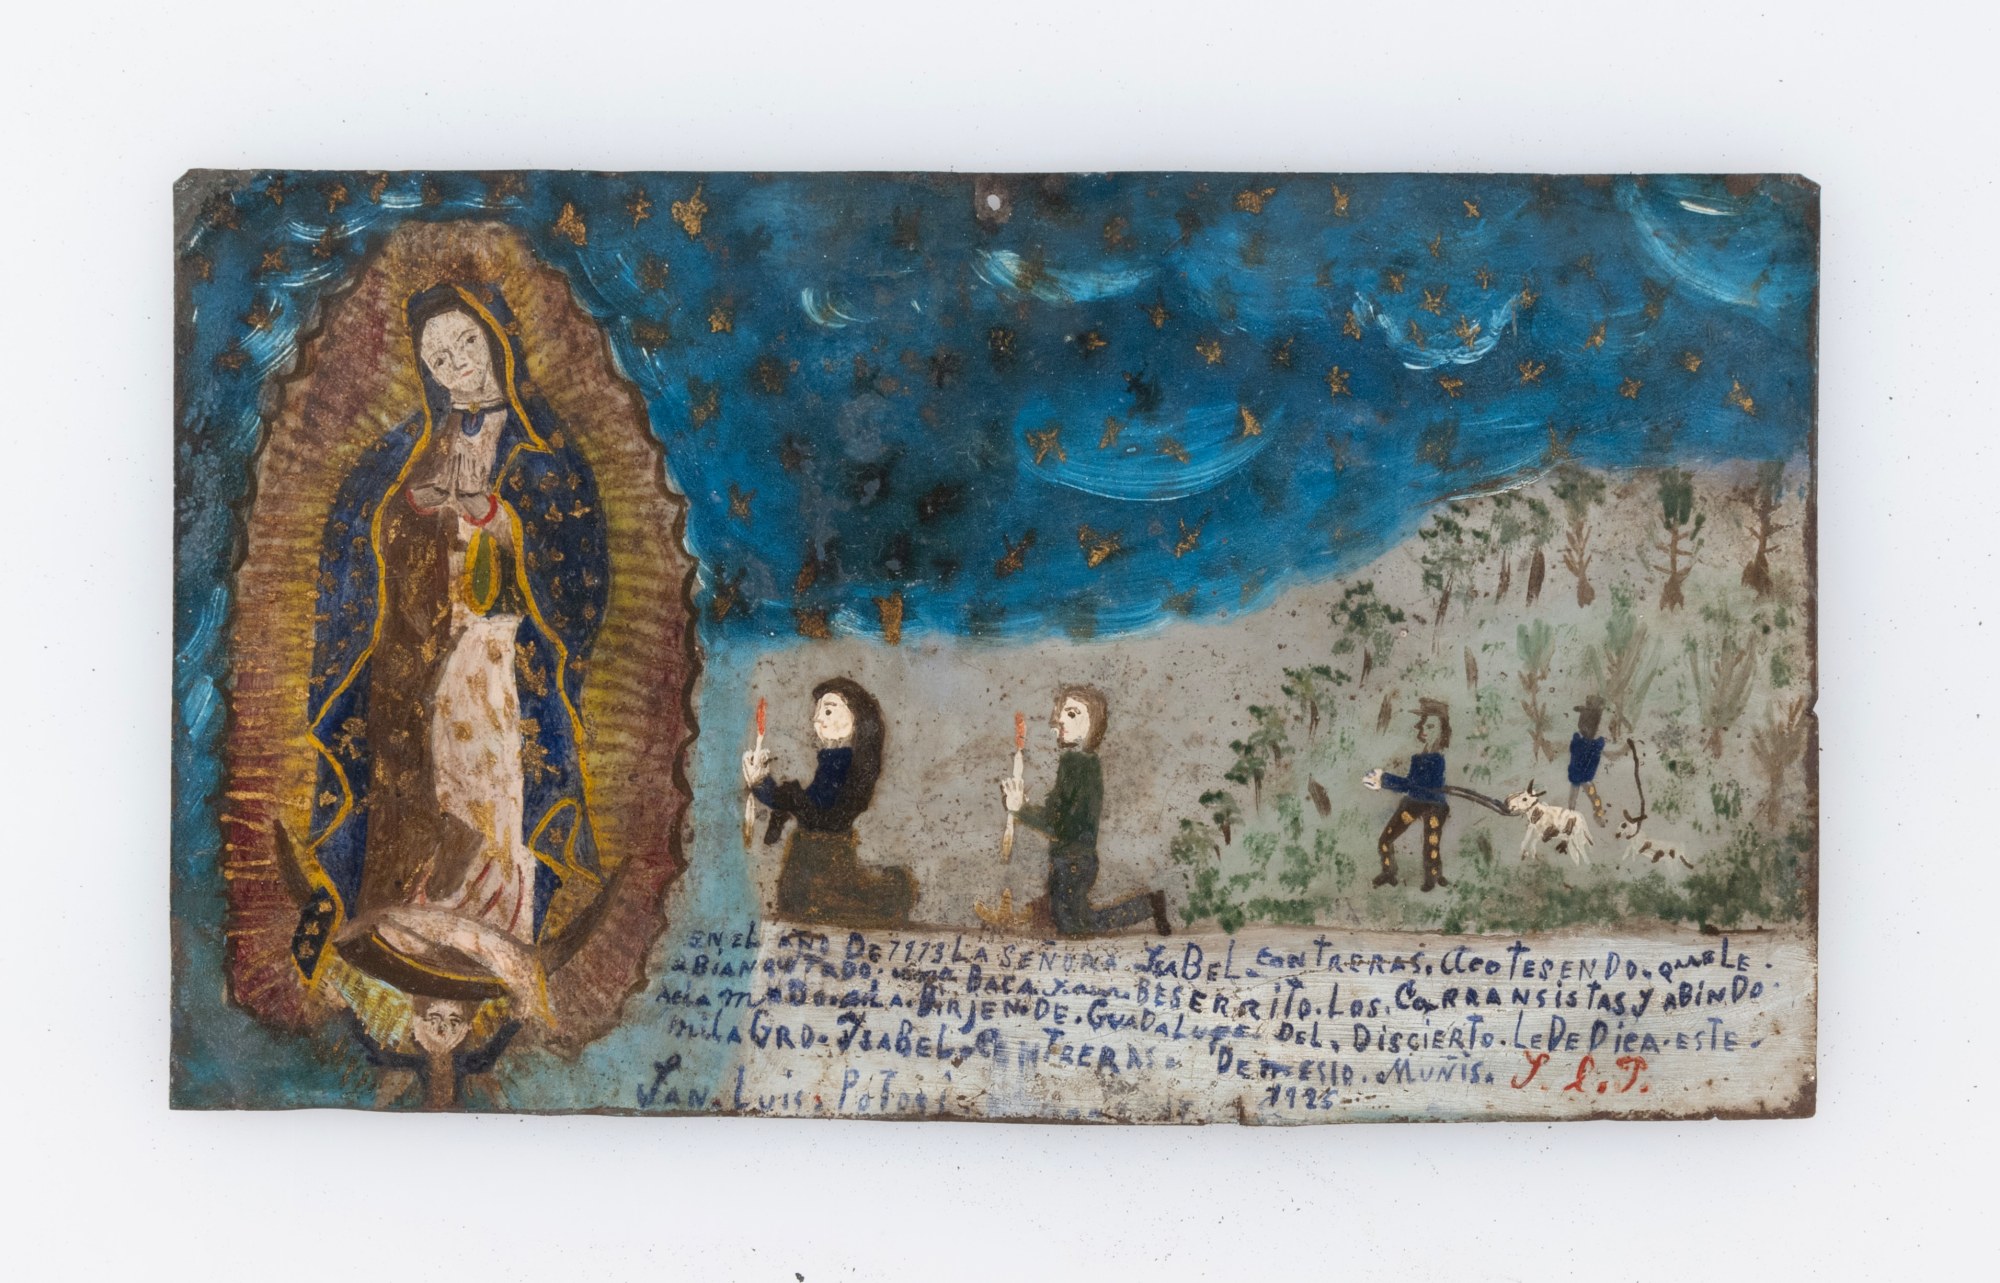 EN EL AÑO DE 1913 LA SEÑORA YSABEL CONTRERAS. ACOTESENDO. QUELE.
ABIAN QUTADO. una BACA. y un. BESERRITO. LOS. CARRANSISTAS Y ABINDO.
ACLAMADO. A LA. BIRJEN. DE. GUADALUPE. DEL. DISCIERTO. LE DEDICA. ESTE.
MILAGRO. YSABEL. CONTRERAS. DEMESIO. MUÑIS. S. L. P.
SAN. LUIS. POTOSÍ 1925